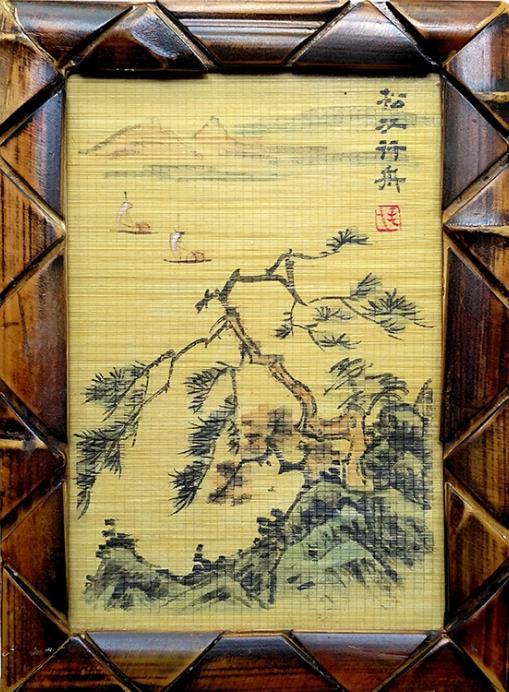 松江行舟